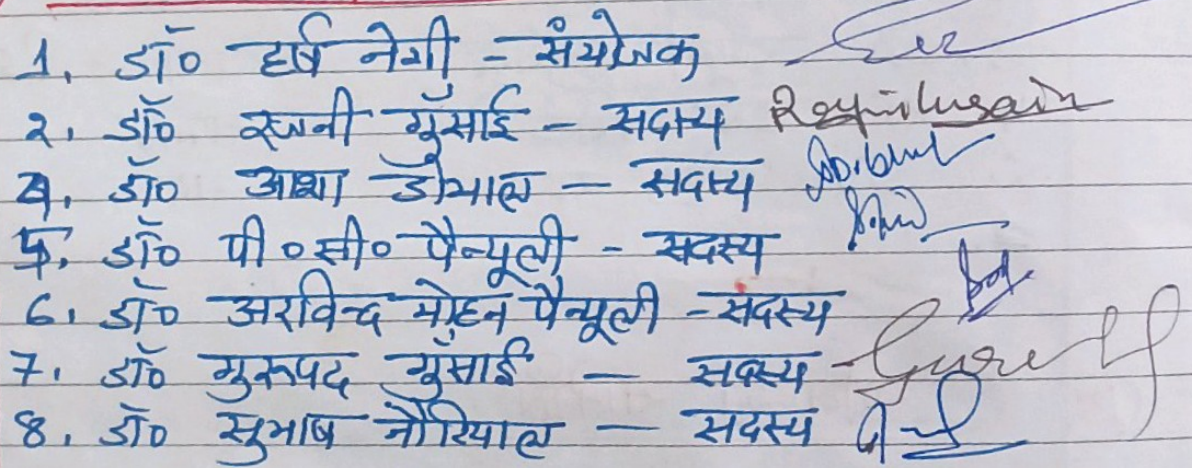 1. डॉ० हर्ष नेगी - संयोजक
2. डॉ० रजनी गुँसाई - सदस्य
4. डॉ० आशा डोभाल - सदस्य
5. डॉ० पी०सी० पैन्यूली - सदस्य
6. डॉ० अरविन्द मोहन पैन्यूली - सदस्य
7. डॉ० गुरुपद गुँसाई - सदस्य
8. डॉ० सुभाष नौटियाल - सदस्य